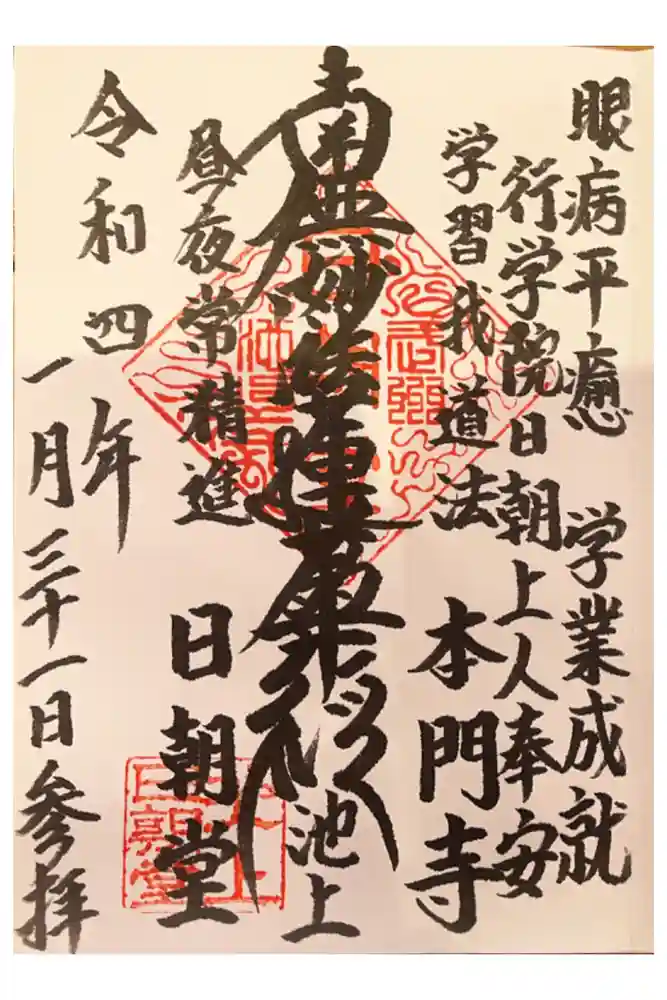 眼病平癒 学業成就
行学院日朝上人奉安
学習我道法
本門寺
南無妙法蓮華経
池上
昼夜常精進
日朝堂
令和四年
一月三十一日参拝